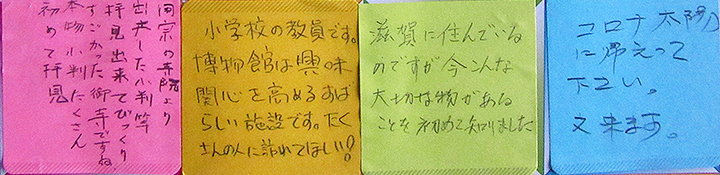 同宗の寺院より
出来した小判等
拝見出来てびっくり
すごかった御寺ですね
本物小判たくさん
初めて拝見
小学校の教員です。
博物館は興味
関心を高めるすば
らしい施設です。たく
さんの人に訪れてほしい!
滋賀に住んでいる
のですが今こんな
大切な物がある
ことを初めて知りました
コロナ太陽
に帰えって
下さい。
又来ます。